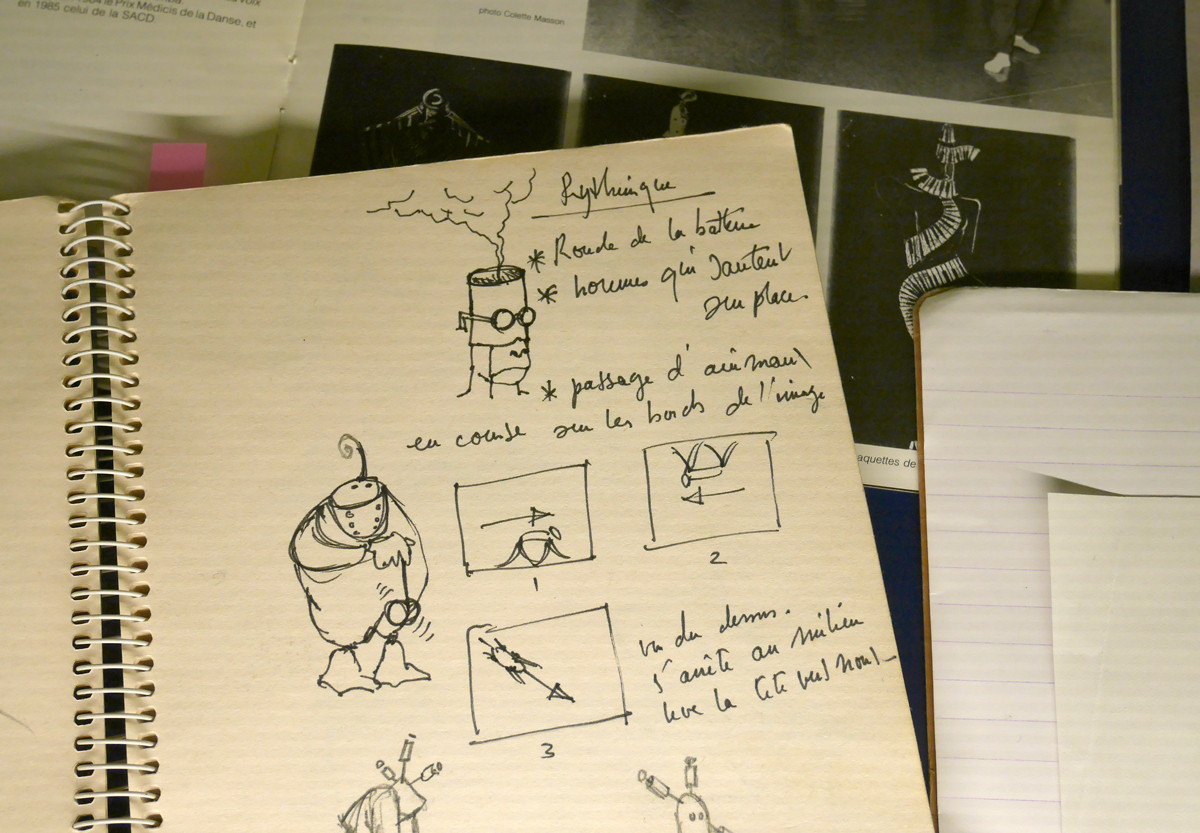 en 1984 le Prix Médicis de la Danse, et
en 1985 celui de la SACD.
photo Colette Masson
Rythmique
* Ronde de la batterie
* hommes qui sautent
sur place.
* passage d'animaux
en course sur les bords de l'image
1
2
vu du dessus.
s'arrête au milieu
lève la tête vers nous
3
aquettes de